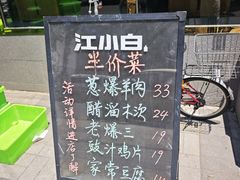 江小白
半价菜
葱爆羊肉 33
醋溜木须 24
老爆三 19
豉汁鸡片 19
家常豆腐
活动详情进店了解